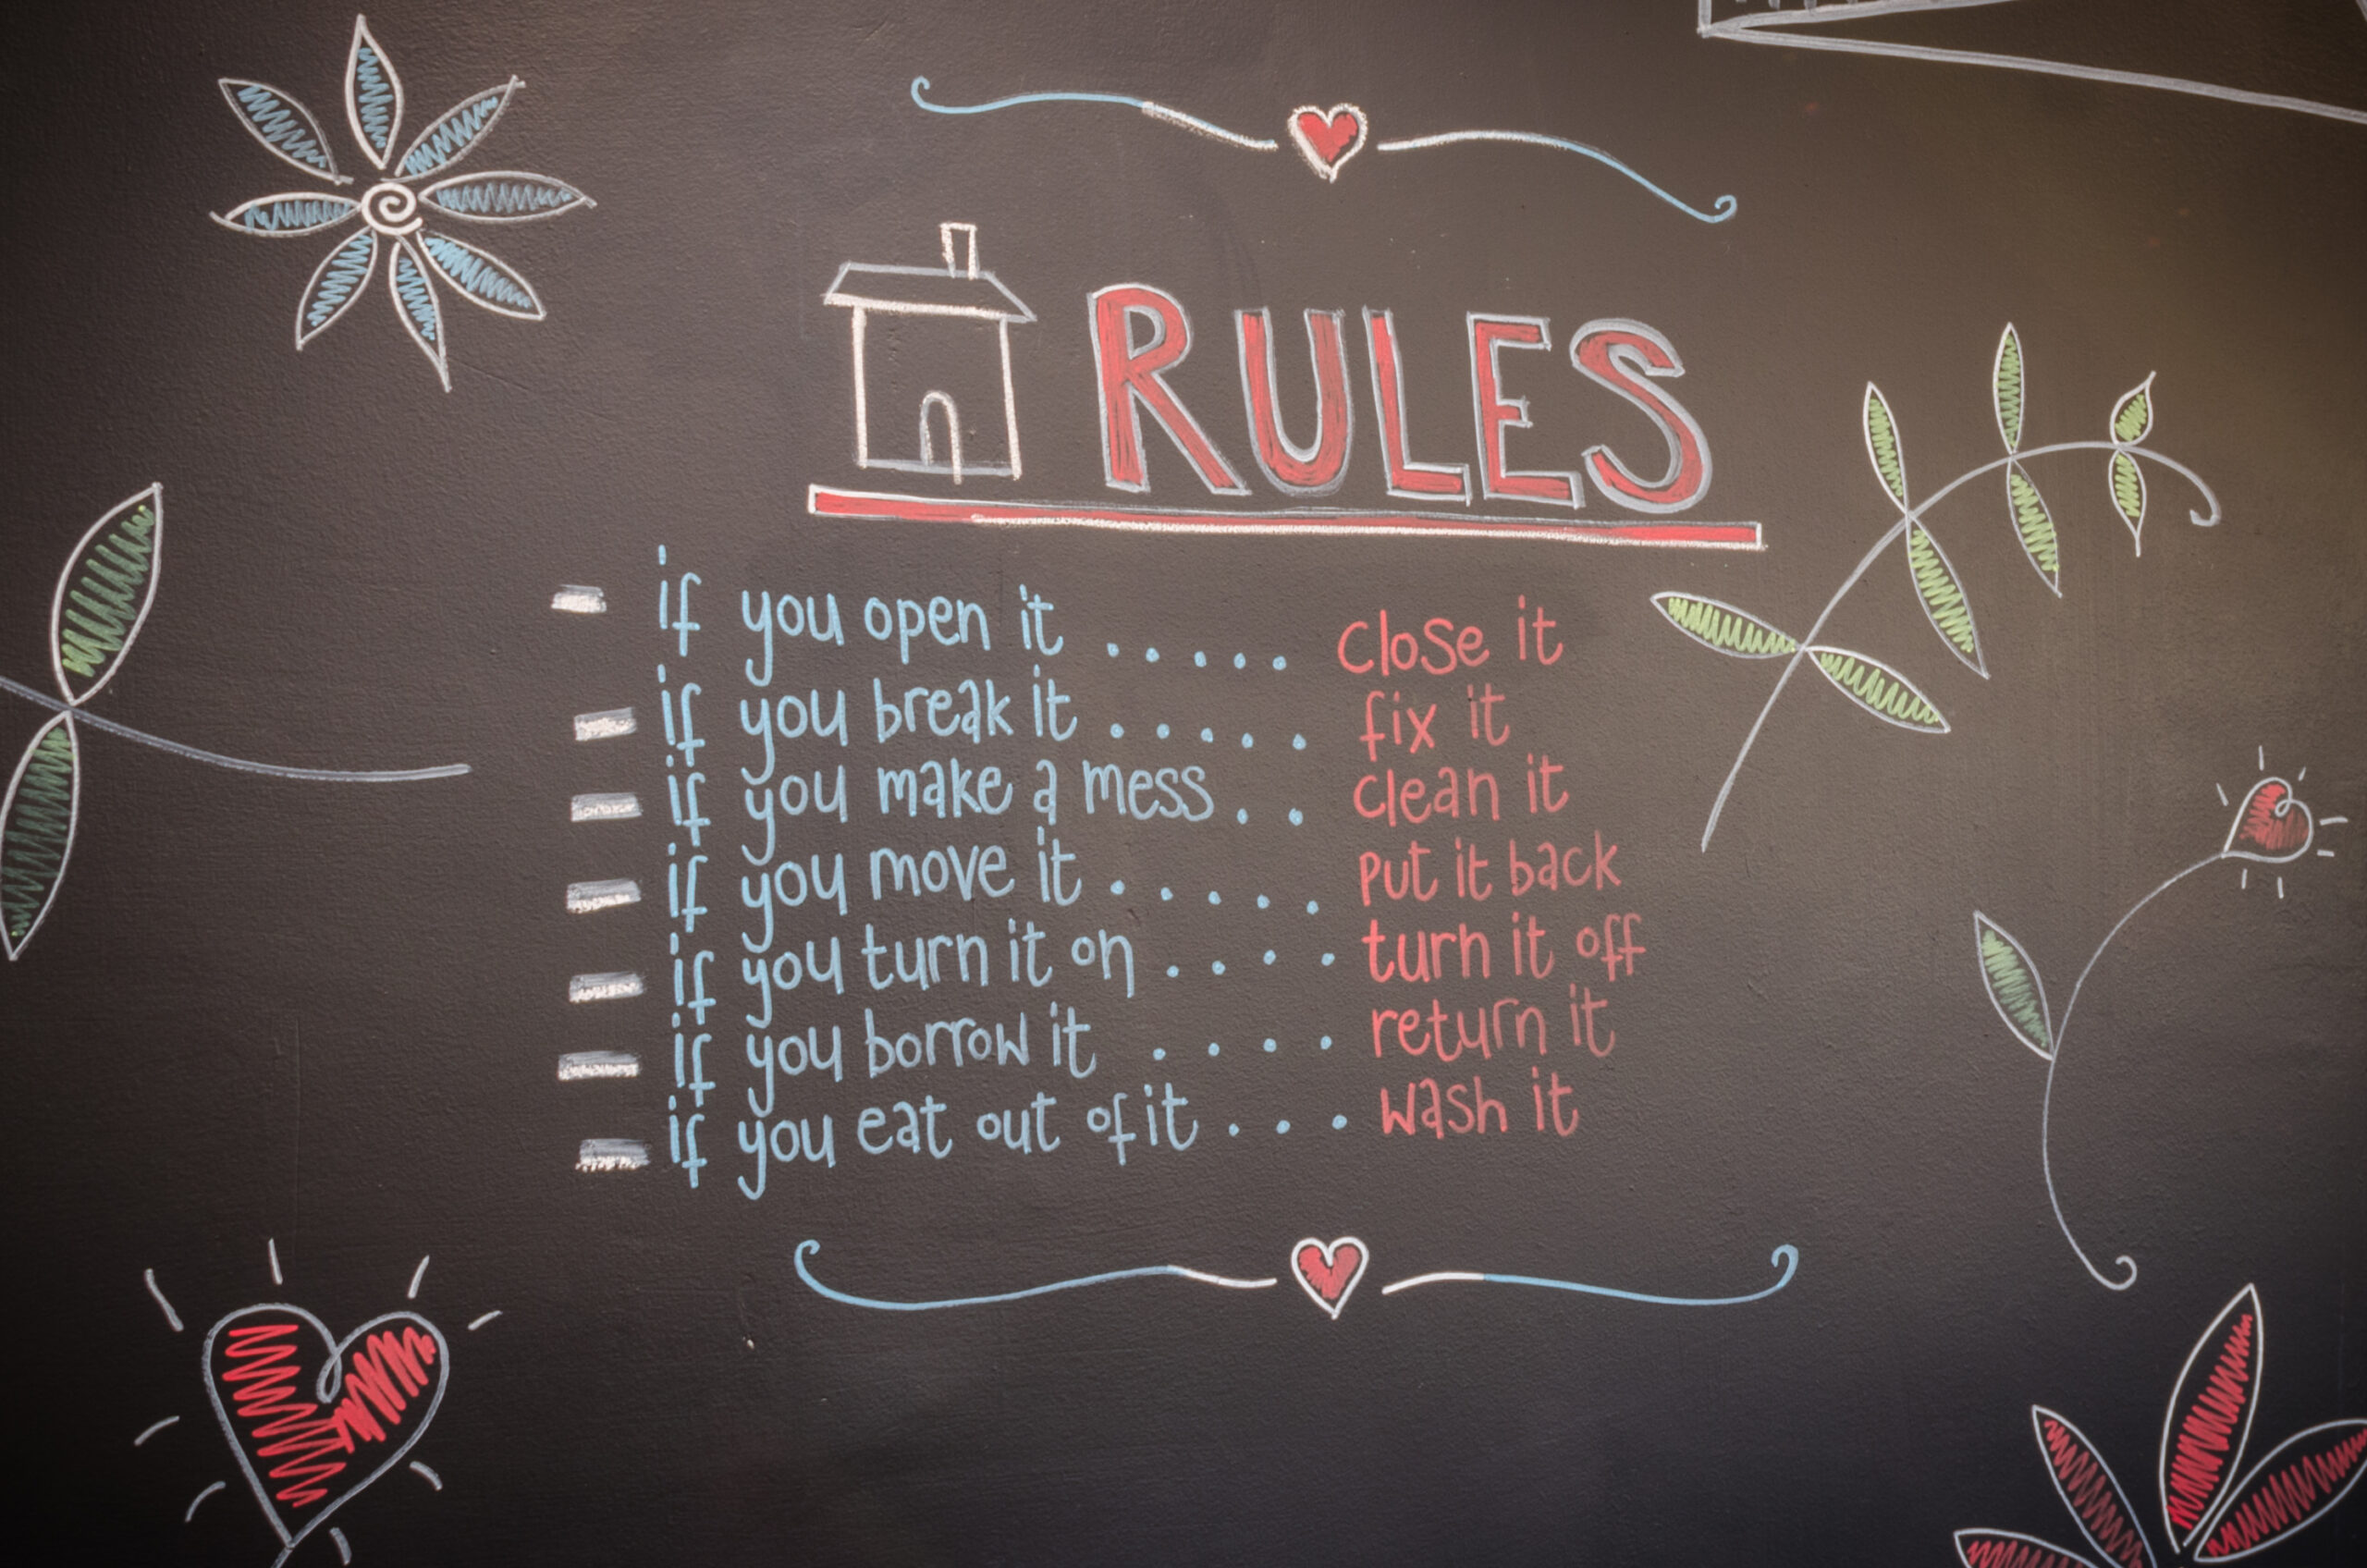 RULES
- if you open it ..... close it
- if you break it ..... fix it
- if you make a mess .. clean it
- if you move it ..... put it back
- if you turn it on .... turn it off
- if you borrow it .... return it
- if you eat out of it ... wash it